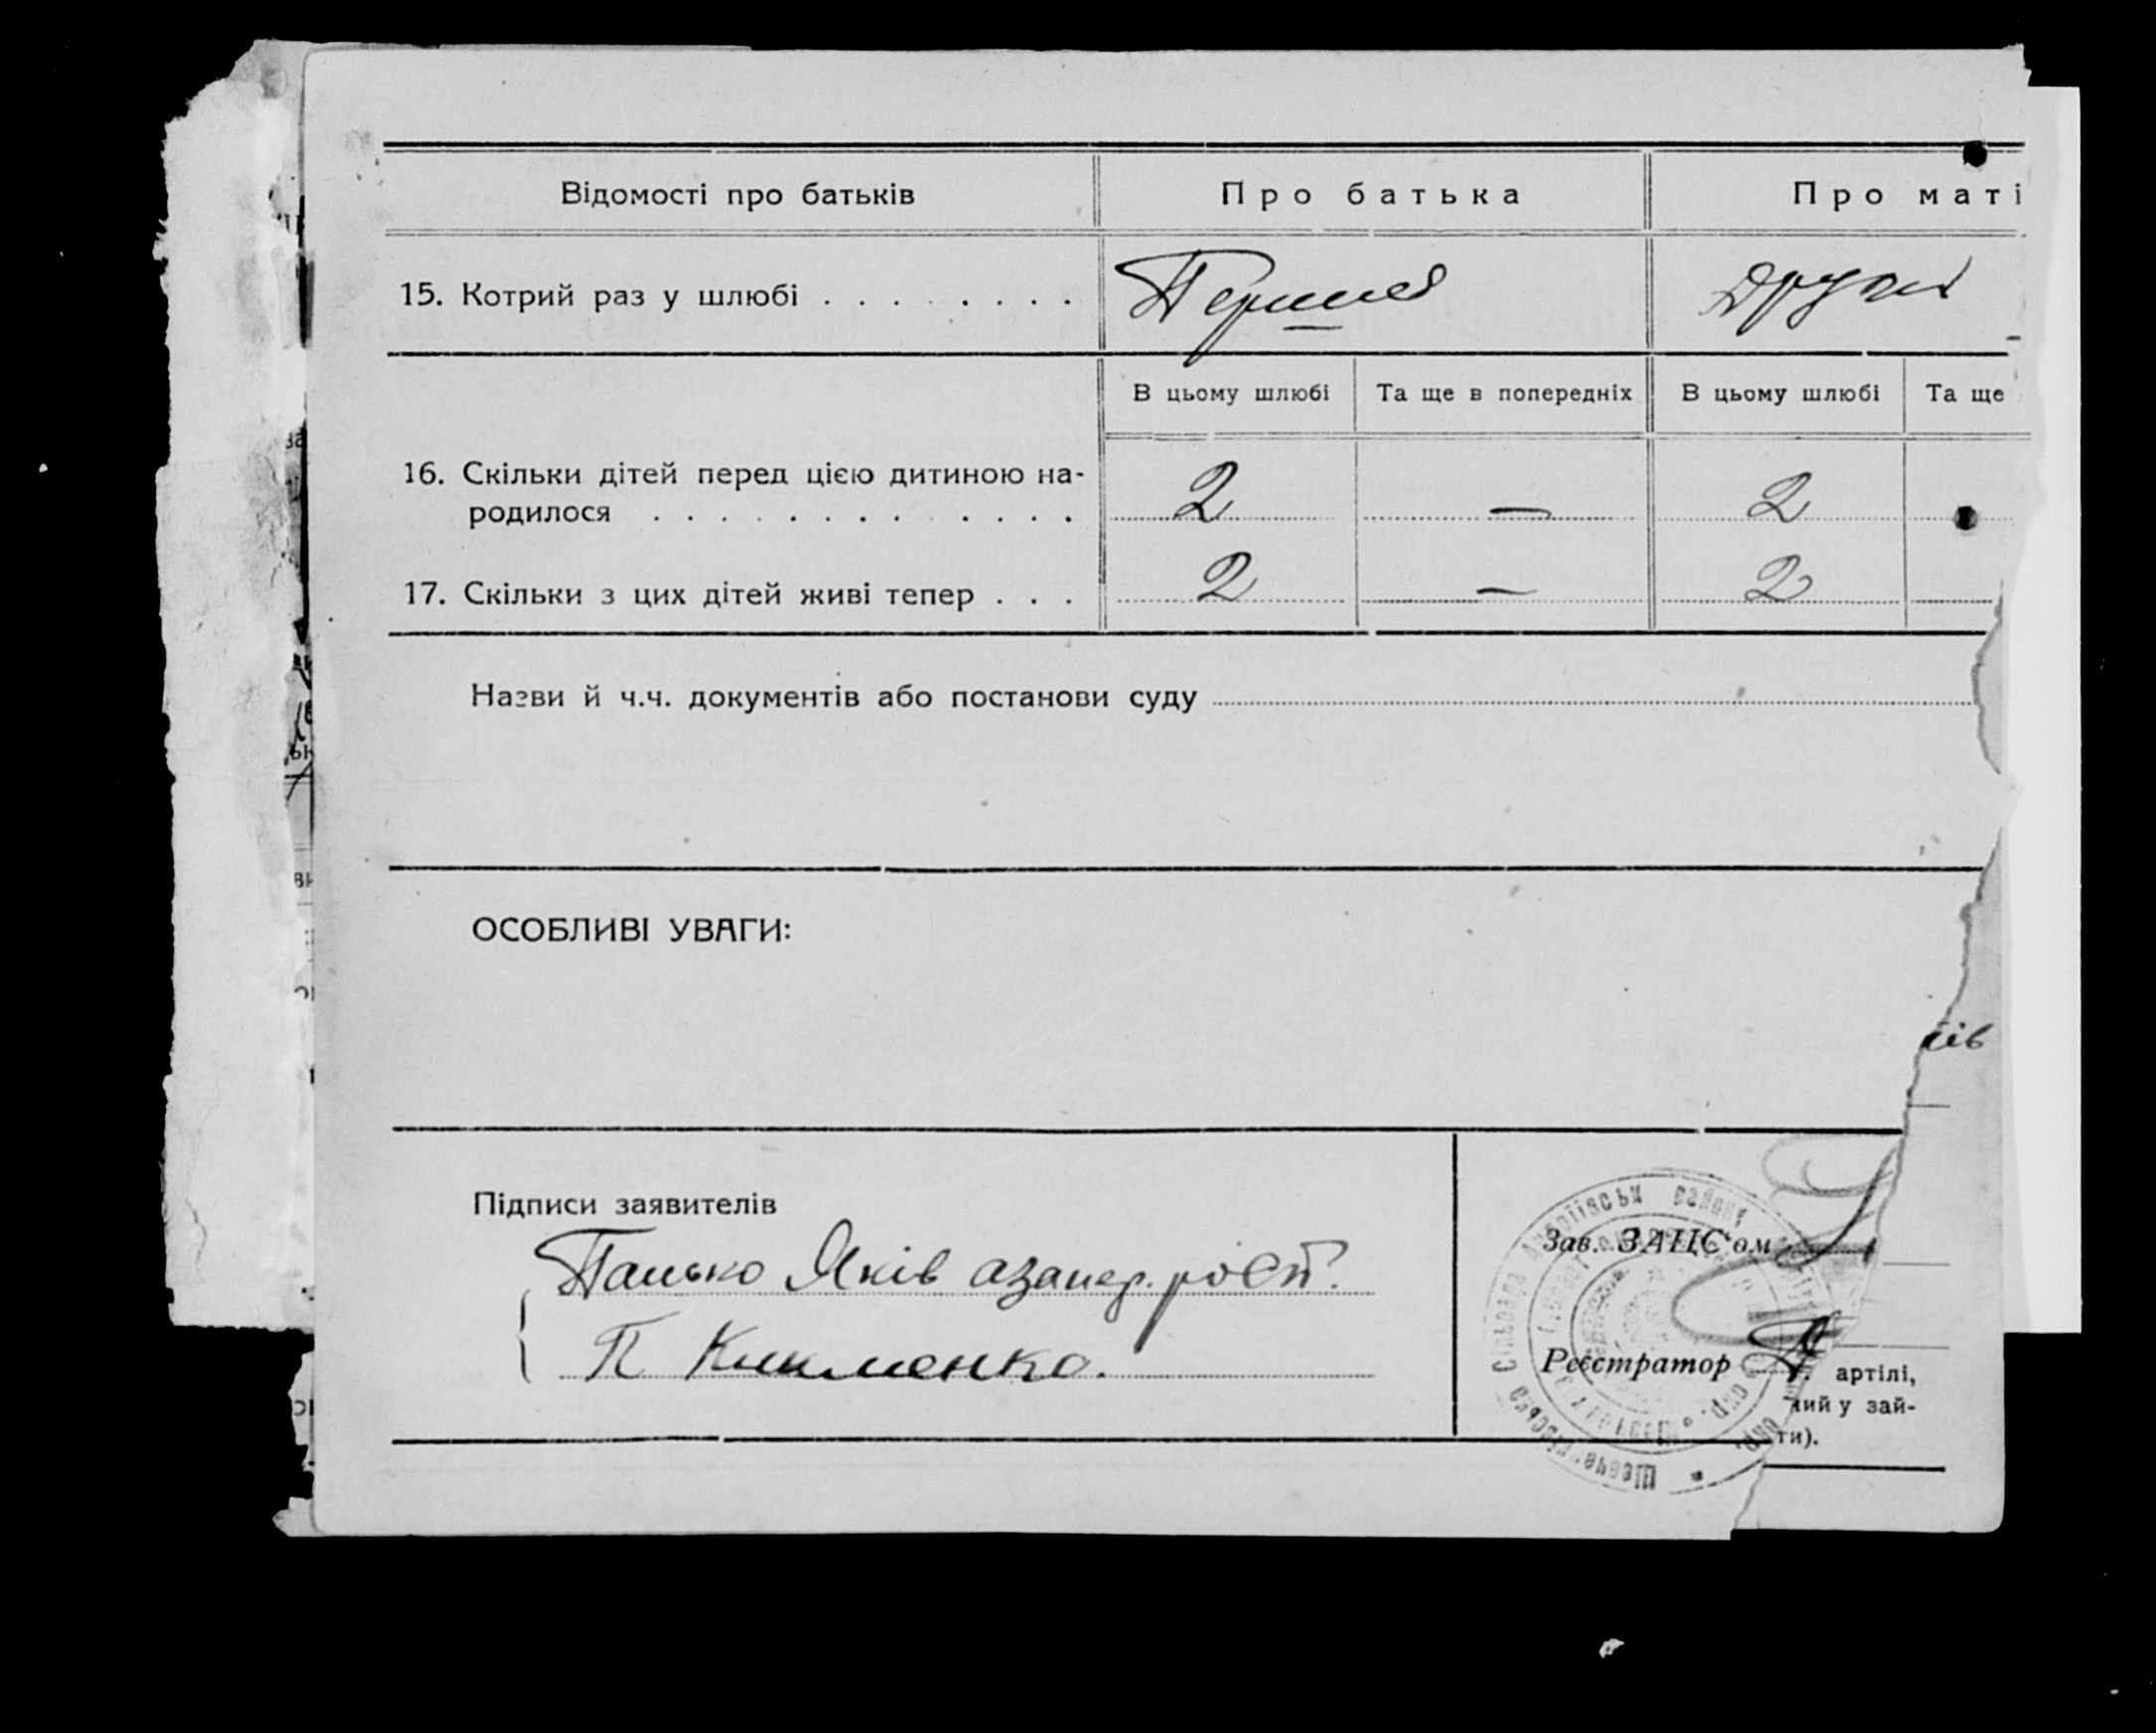 Відомості про батьків
Про батька
Про маті
15. Котрий раз у шлюбі . . . . . . . .
Перший
Другий
В цьому шлюбі
Та ще в попередніх
В цьому шлюбі
Та ще
16. Скільки дітей перед цією дитиною на-
родилося . . . . . . . . . . . . .
2
—
2
17. Скільки з цих дітей живі тепер . . .
2
—
2
Назви й ч.ч. документів або постанови суду
ОСОБЛИВІ УВАГИ:
ів
Підписи заявителів
Панько Яків
П Клименко.
Зав. ЗАГС'ом
Реєстратор
артілі,
ний у зай-
ти).